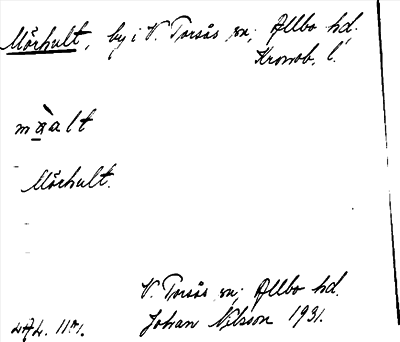 Mörhult, by i V. Torsås sn, Allbo hd,
Kronob. l.
mạ̀alt
Mörhult.
V. Torsås sn, Allbo hd.
Johan Nilsson 1931.